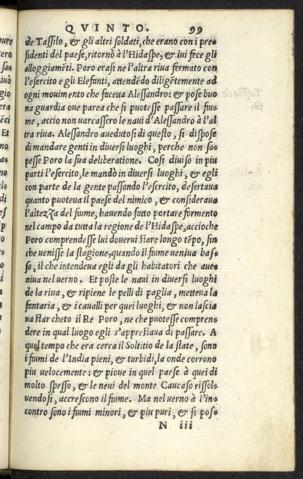 QVINTO. 99
de Tassilo, & gli altri soldati, che erano con i pre=
sidenti del paese, ritornò à l'Hidaspe, & iui fece gli
alloggiamẽti. Poro erasi ne l'altra riua fermato con
l'esercito e gli Elefanti, attendẽdo diligẽtemente ad
ogni mouimento che faceua Alessandro: & pose buo
ne guardia oue parea che si potesse passare il fiu=
me, accio non uarcassero le naui d'Alessandro à l'al
tra riua. Alessandro auedutosi di questo, si dispose
di mandare genti in diuersi luoghi, perche non sa=
pesse Poro la sua deliberatione. Cosi diuiso in piu
parti l'esercito, le mandò in diuersi luoghi, & egli
con parte de la gente passando l'esercito, desertaua
quanto poteua il paese del nimico, & consideraua
l'altezza del fiume, hauendo fatto portare formento
nel campo da tutta la regione de l'Hidaspe, accioche
Poro comprendesse lui douerui stare longo tẽpo, sin
che uenisse la stagione, quando il fiume ueniua bas=
so, il che intendeua egli da gli habitatori che aue=
niua nel uerno. Et poste le naui in diuersi luoghi
de la riua, & ripiene le pelli di paglia, metteua la
fantaria, & i caualli per quei luoghi, & non lascia
ua star cheto il Re Poro, ne che potesse compren=
dere in qual luogo egli s'apprestaua di passare. A
quel tempo che era cerca il Solstitio de la state, sono
i fiumi de l'India pieni, & turbidi, la onde corrono
piu uelocemente: & pioue in quel paese à quei di
molto spesso, & le neui del monte Caucaso rissol=
uendosi, accrescono il fiume. Ma nel uerno à l'in=
contro sono i fiumi minori, & piu puri, & si pos=
N iii